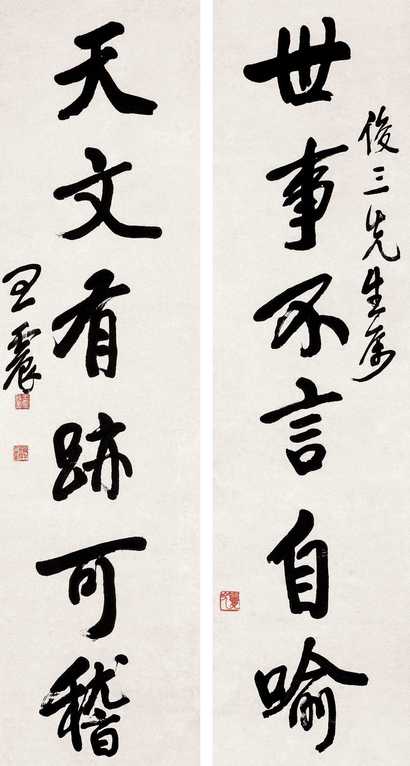 俊三先生属
世事不言自喻
天文有跡可稽
王震